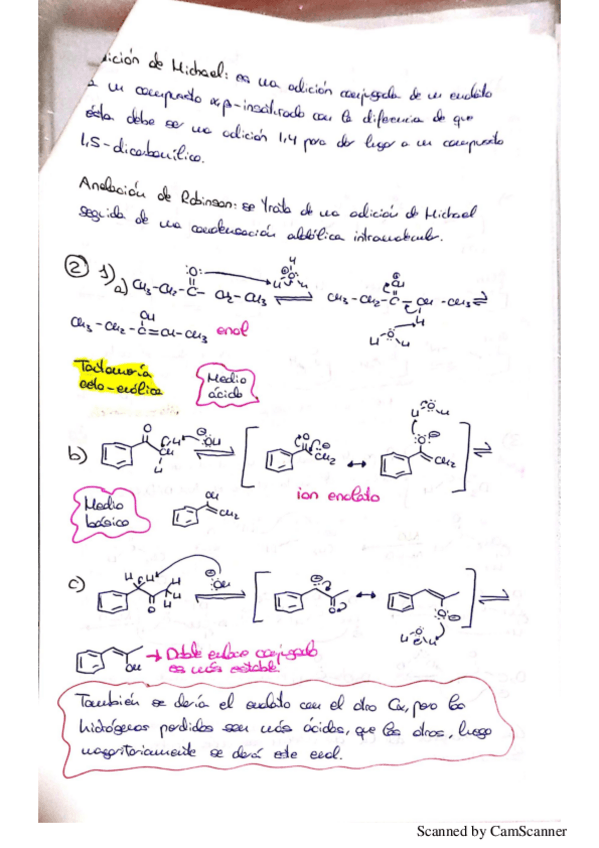 ición de Michael: es una adición conjugada de un enolato
a un compuesto α,β-insaturado con la diferencia de que
ésta debe ser una adición 1,4 para dar lugar a un compuesto
1,5-dicarbonílico.
Anelación de Robinson: se trata de una adición de Michael
seguida de una condensación aldólica intramolecular.
② 1)
a) CH3-CH2-C-CH2-CH3 ⇌ CH3-CH2-C-CH-CH3 ⇌
CH3-CH2-C=CH-CH3 enol
Tautomería
ceto-enólica
Medio
ácido
b)
ion enolato
Medio
básico
c)
→ Doble enlace conjugado
es más estable!
También se daría el enolato con el otro Cα, pero los
hidrógenos perdidos son más ácidos, que los otros, luego
mayoritariamente se dará este enol.
Scanned by CamScanner